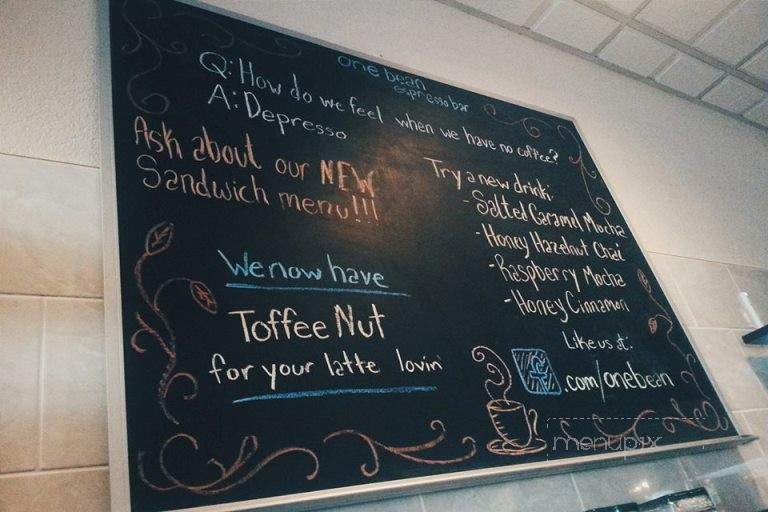 one bean
espresso bar
Q: How do we feel when we have no coffee?
A: Depresso
Ask about our NEW
Sandwich menu!!!
We now have
Toffee Nut
for your latte lovin'
Try a new drink:
- Salted Caramel Mocha
- Honey Hazelnut Chai
- Raspberry Mocha
- Honey Cinnamon
Like us at:
f.com/onebean
menupix